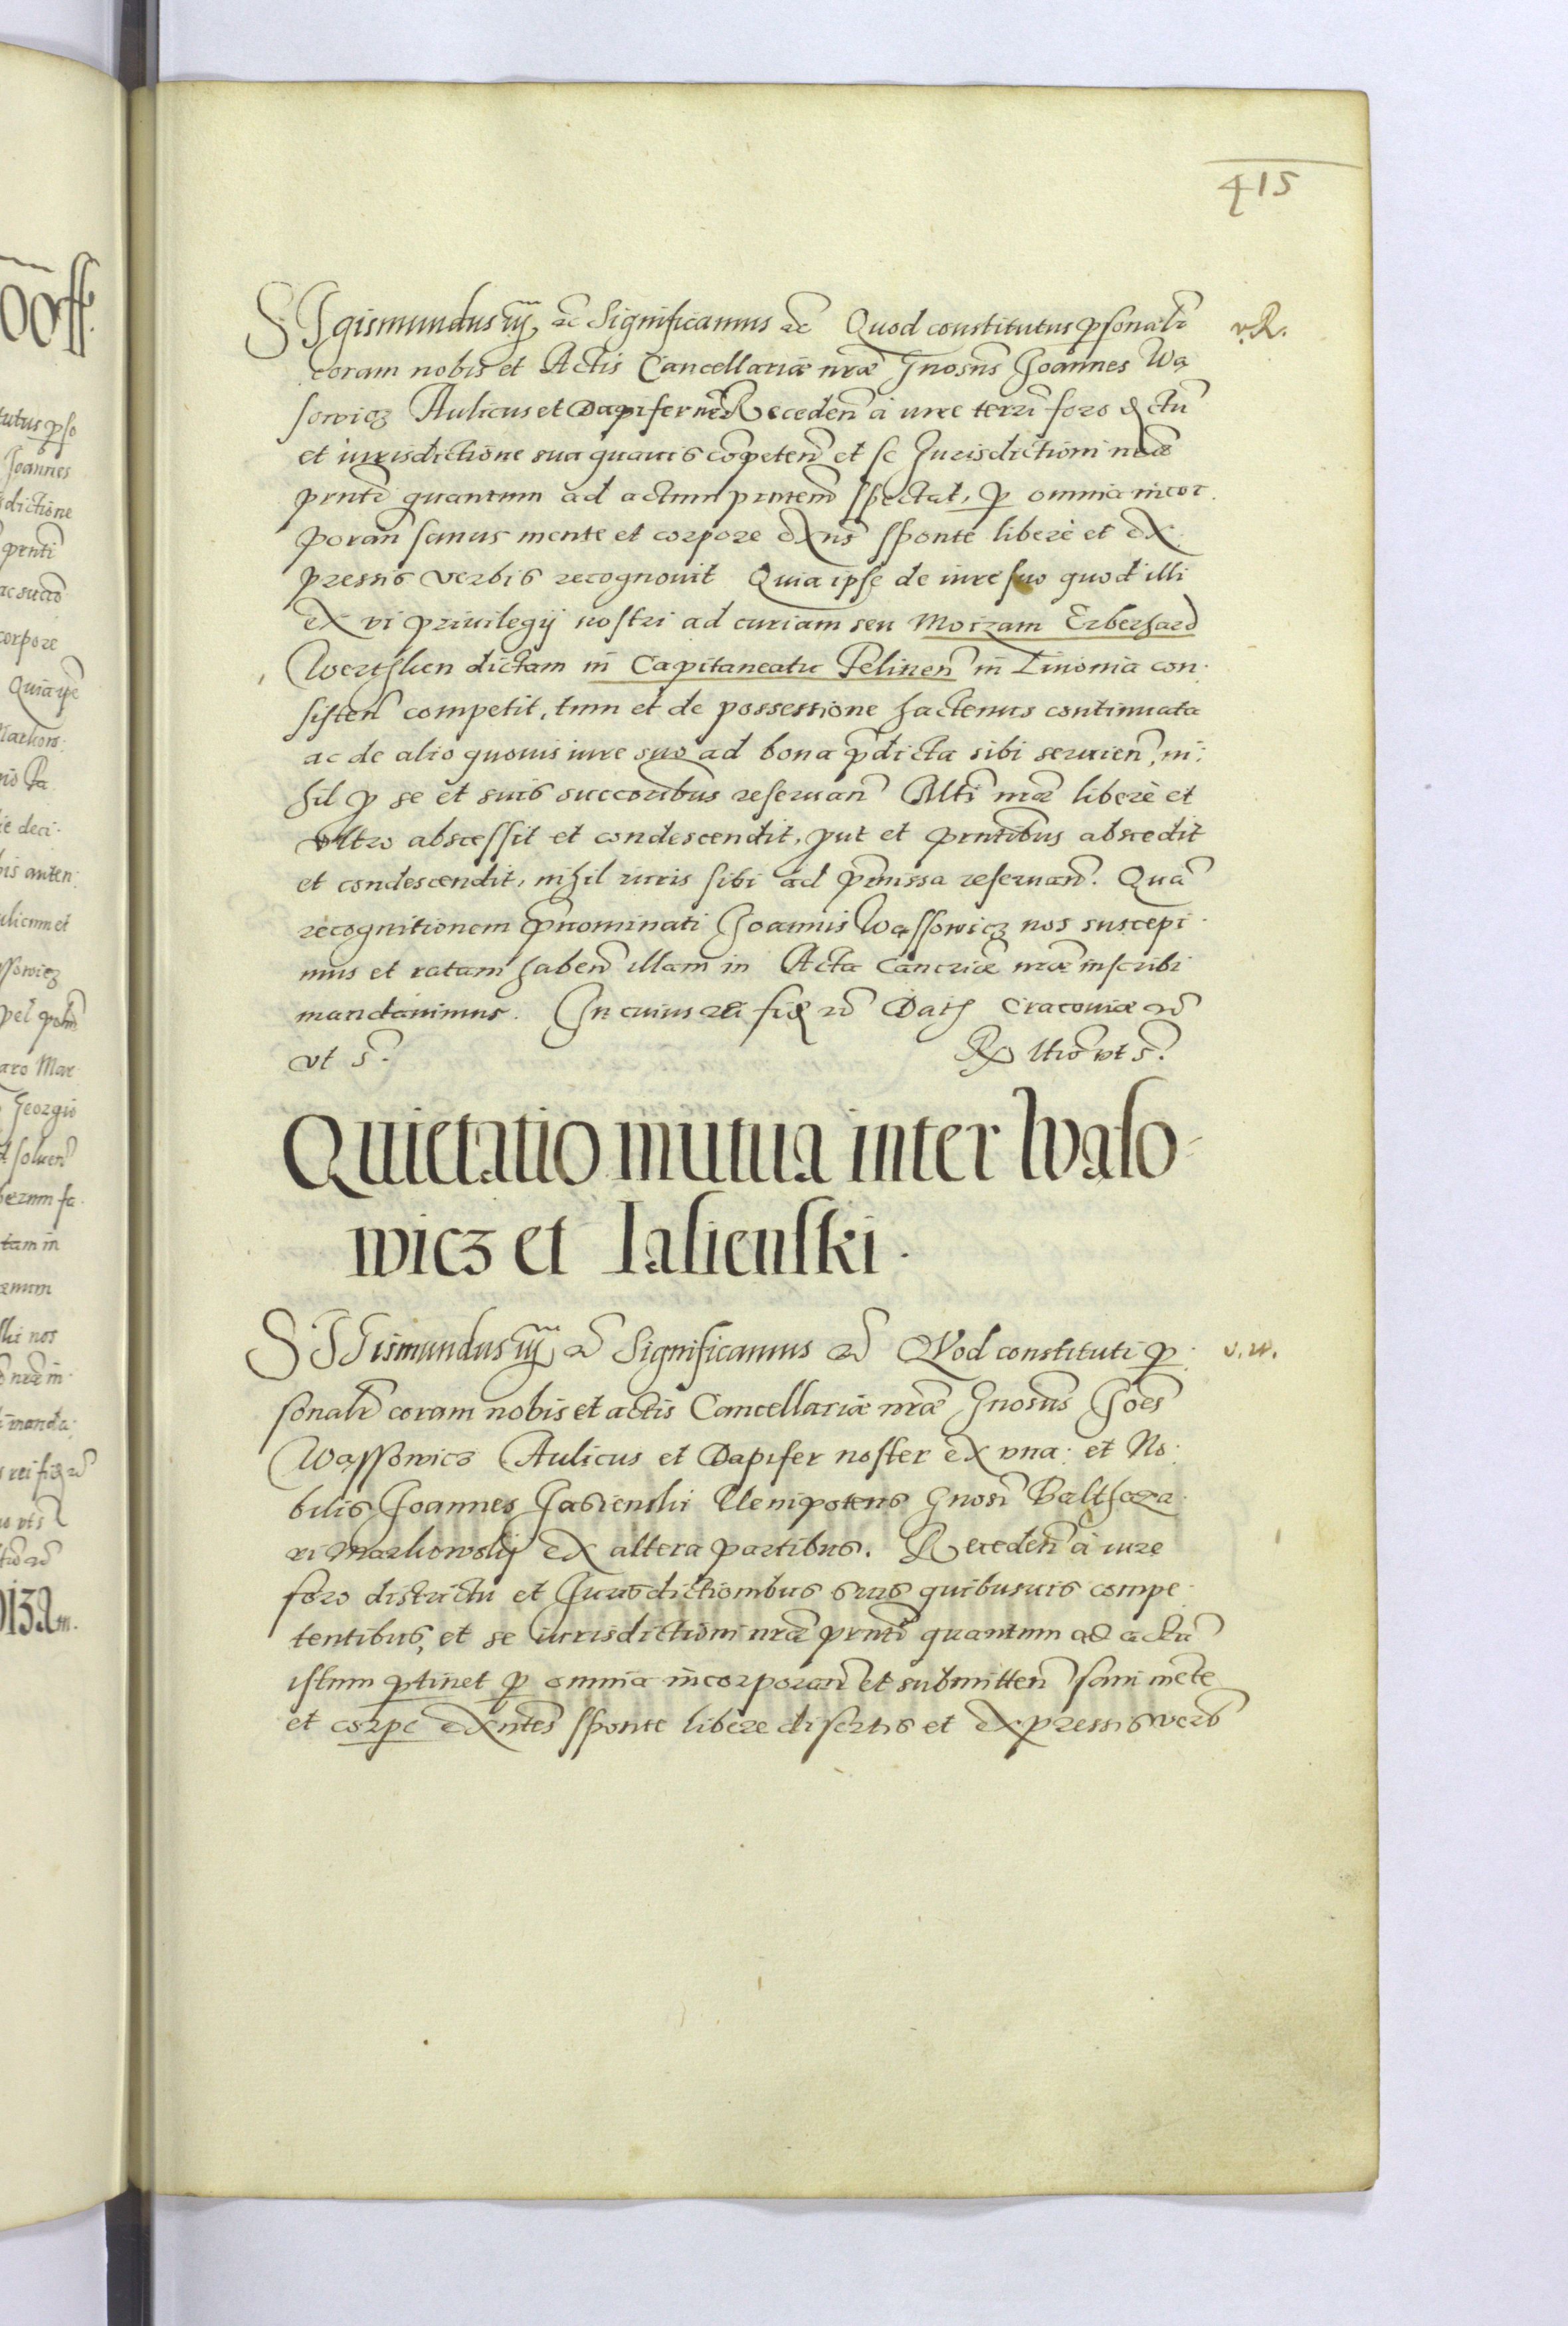 415
SIgismundus iij, etc Significamus etc Quod constitutus psonalr̃
coram nobis et Actis Cancellariæ nræ Gnosus Joannes Wą
sowicz Aulicus et Dapifer nr̃ Receden̄ à iure terr̃i foro dctu
et iurisdictione sua quauis cōpeten̄ et se Jurisdictioni nræ
pn̄ti quantum ad actum pn̄tem spectat, p omnia incor
poran̄ sanus mente et corpore exn̄s sponte libere et ex
pressis verbis recognouit Quia ipse de iure suo quod illi
ex vi priuilegij nostri ad curiam seu Moizam Erberhard
Werthlien dictam in Capitaneatu Felinen̄ in Liuonia con
sisten̄ competit, tum et de possessione hactenus continuata
ac de alio quouis iure suo ad bona p̄dicta sibi seruien̄, ni
hil p se et suis succoribus reseruan̄ Mti nræ liberè et
vltro abscessit et condescendit, put et pn̄tibus abscedit
et condescendit, nihil iuris sibi ad pr̄missa reseruan̄. Quā
recognitionem p̄nominati Joannis Wąssowicz nos suscepi
mus et ratam haben̄ illam in Acta Cancriæ nræ inscribi
mandauimus. In cuius rei fid etc Dat Cracouiæ etc
vt s. R ltio vt s.
Quietatio mutua inter Wąso
wicz et Jasienski.
SIGismundus iij etc Significamus etc QVod constituti p
sonalr̃ coram nobis et actis Cancellariæ nræ Gnosus Joēs
Wąssowicz Aulicus et Dapifer noster ex vna: et No
bilis Joannes Jasienski Plenipotens Gnosi Balthaza
ri Markowskij ex altera partibus. Receden̄ à iure
foro districtu et Jurisdictionibus suis quibusuis compe
tentibus, et se iurisdictioni nræ pn̄ti quantum ad actū
istum ptinet p omnia incorporan̄ et submitten̄ sani mēte
et corpe exn̄tes sponte libere disertis et expressis verb
v. R.
v. w.